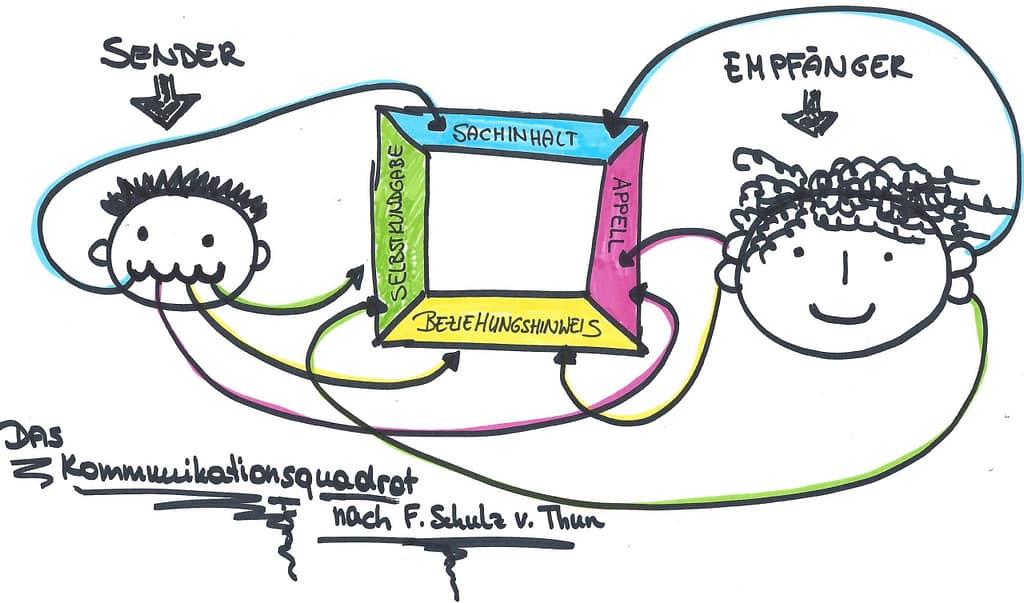 SENDER
EMPFÄNGER
SACHINHALT
SELBSTKUNDGABE
APPELL
BEZIEHUNGSHINWEIS
DAS
Kommunikationsquadrat
nach F. Schulz v. Thun